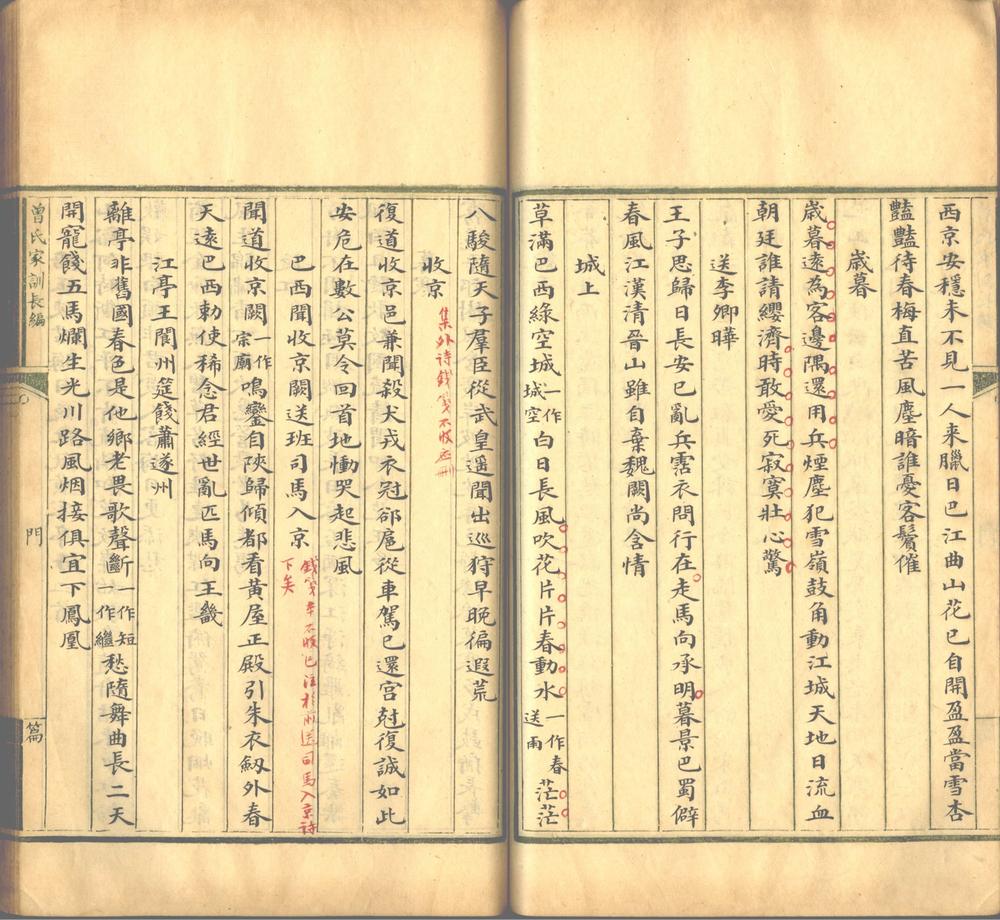 西京安穩未不見一人来臘日巴江曲山花已自開盈盈當雪杏
豔豔待春梅直苦風塵暗誰憂客鬢催
歲暮
歲暮遠為客邊隅還用兵煙塵犯雪嶺鼓角動江城天地日流血
朝廷誰請纓濟時敢愛死寂寞壯心驚
送李卿曄
王子思歸日長安已亂兵霑衣問行在走馬向承明暮景巴蜀僻
春風江漢清晉山雖自棄魏闕尚含情
城上
草滿巴西綠空城一作城空白日長風吹花片片春動水一作春送雨茫茫
八駿隨天子羣臣從武皇遥聞出巡狩早晚徧遐荒
收京
集外诗錢箋不收应刪
復道收京邑兼聞殺犬戎衣冠郤扈從車駕已還宮尅復誠如此
安危在數公莫令回首地慟哭起悲風
巴西聞收京闕送班司馬入京
錢箋本不收已注於前送司馬入京詩
下矣
聞道收京闕一作宗廟鳴鑾自陝歸傾都看黃屋正殿引朱衣劔外春
天遠巴西勅使稀念君經世亂匹馬向王畿
江亭王閬州筵餞蕭遂州
離亭非舊國春色是他鄉老畏歌聲斷一作短一作繼愁隨舞曲長二天
開寵餞五馬爛生光川路風烟接俱宜下鳳凰
曾氏家訓長編
門
篇